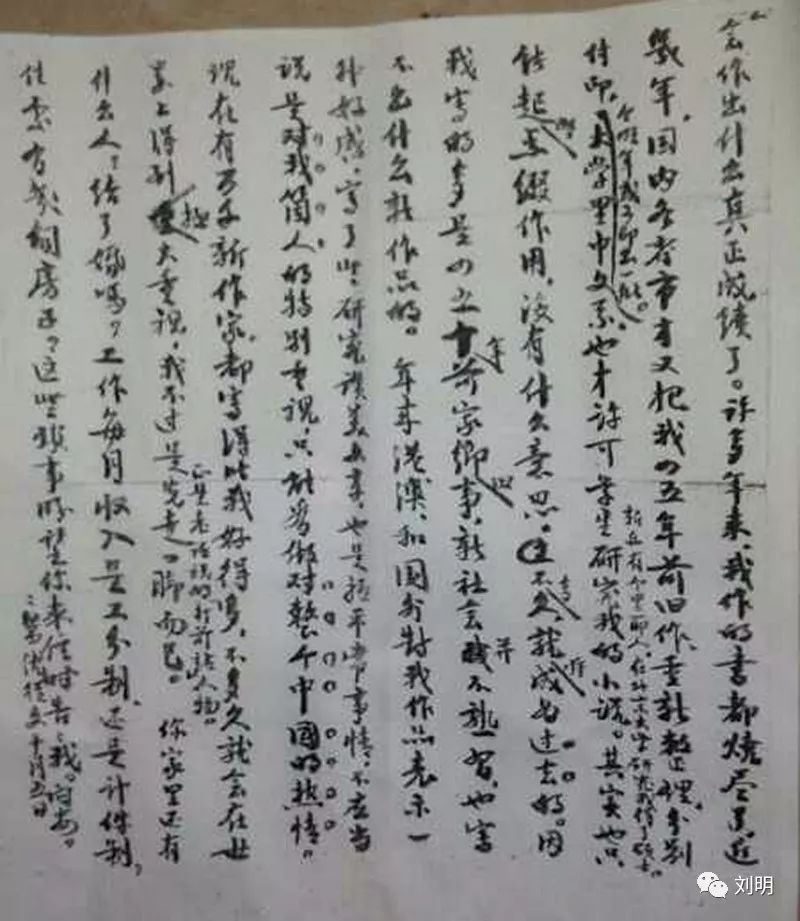 会作出什么真正成绩了。许多年来，我作的书都烧尽了，近
几年，国内各省市才又把我四五年前旧作，重新整理，分别
付印，今明年或可印出一些。大学里中文系，也才许可学生研究我的小说。其实也只
能起点缀作用，没有什么意思。不久，就成为过去的。因
我写的多是四五十年前家乡事，新社会我并不熟习，也写
不出什么新作品的。年来港澳，和国外对我作品表示一
种好感，写了些研究赞美文章，也是极平常事情，不应当
说是对我个人的特别重视，只能当做对整个中国的热情。
现在有万千新作家，都写得比我好得多，不多久就会在世
界上得到极大重视，我不过是先走一脚而已。正是老话说的打前站人物。你家里还有
什么人？结了婚吗？工作每月收入是工分制，还是计件制，
住处有几间房子？这些琐事盼望你来信时告告我。
沈从文 十月五日
刘明